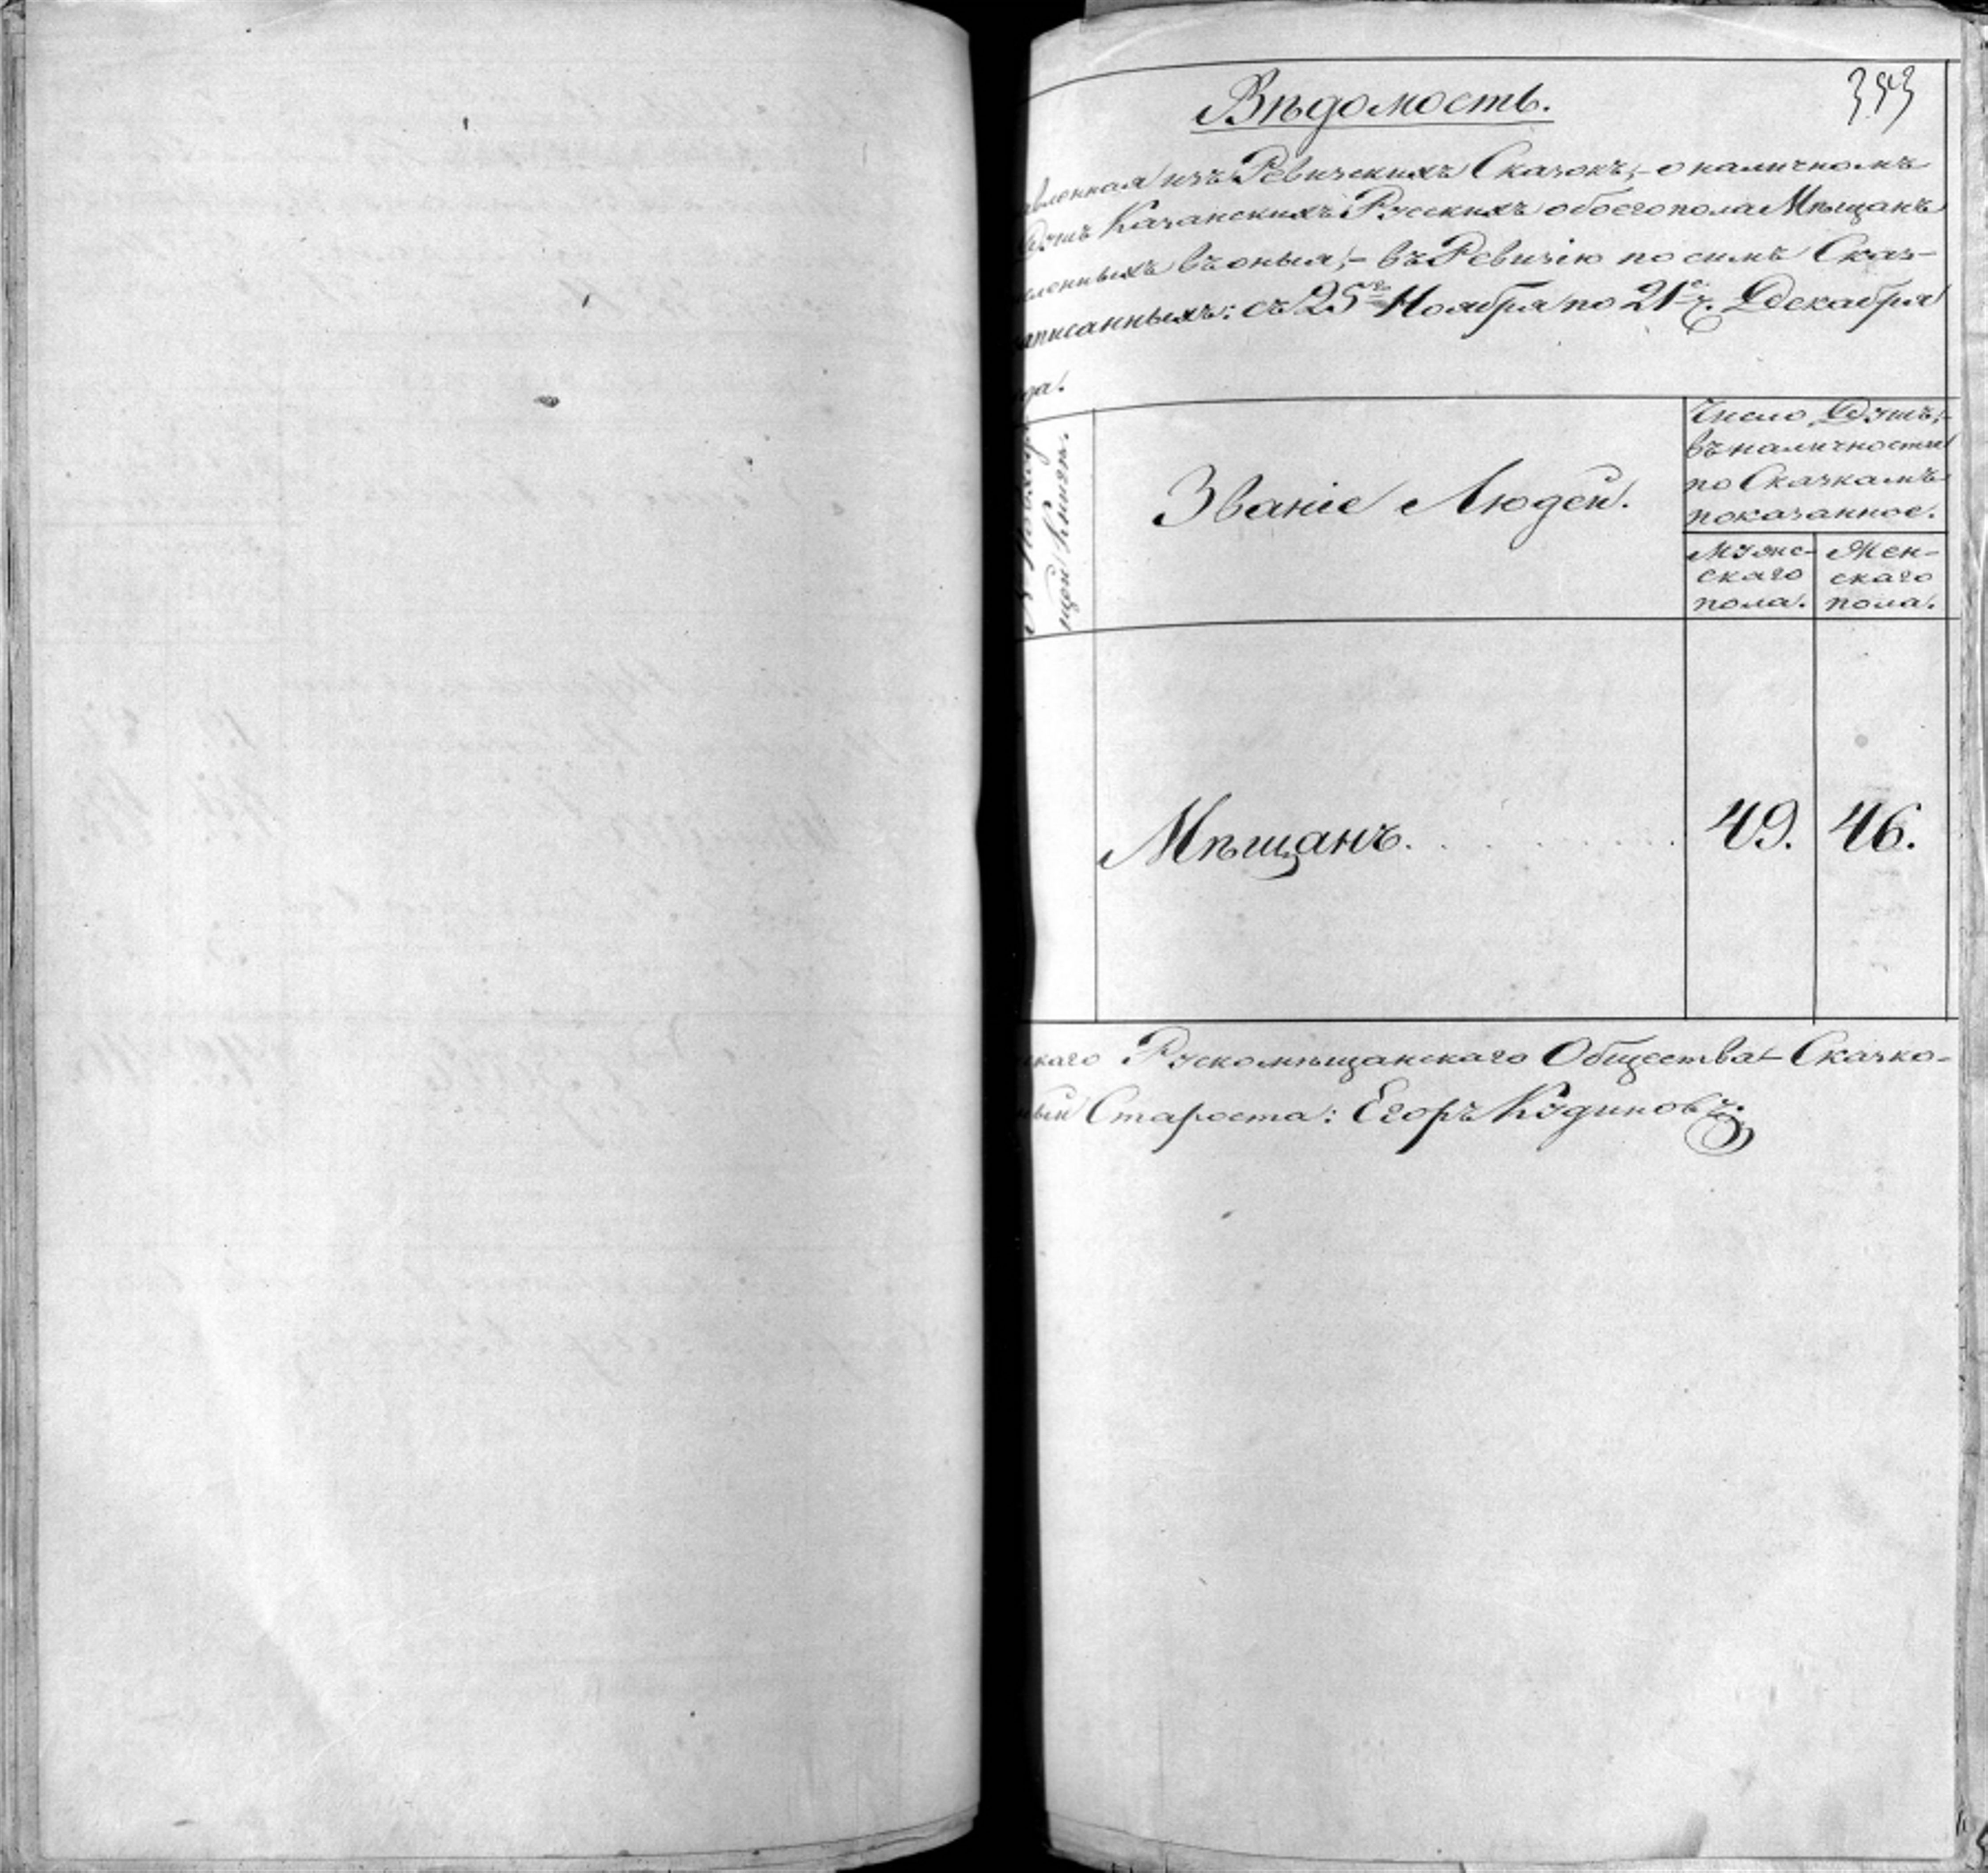 Вѣдомость.
авленная изъ Ревизскихъ Сказокъ, о наличномъ
Душъ Казанскихъ Рускихъ обоего пола Мѣщанъ
сленныхъ въ оныя, въ Ревизію по симъ Сказ-
аписанныхъ: съ 25го Ноября по 21е ч. Декабря
ода.
щой Книги.
Званіе Людей.
Число Душъ,
въ наличности
по Сказкамъ
показанное.
Мужес-
скаго
пола.
Жен-
скаго
пола.
Мѣщанъ. . . . . . . . .
49.
46.
скаго Рускомѣщанскаго Общества Сказко-
ный Староста: Егоръ Кудиновъ